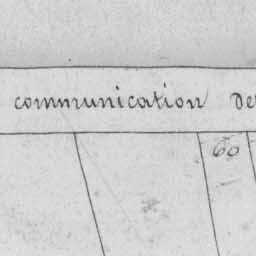 communication de
60